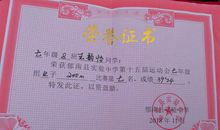 荣誉证书
七年级 班 同学:
荣获郁南县实验中学第十五届运动会七年级
组女子 200m 比赛第七名,成绩
特发此证,以资鼓励。
郁南县实验中学
2018年11月